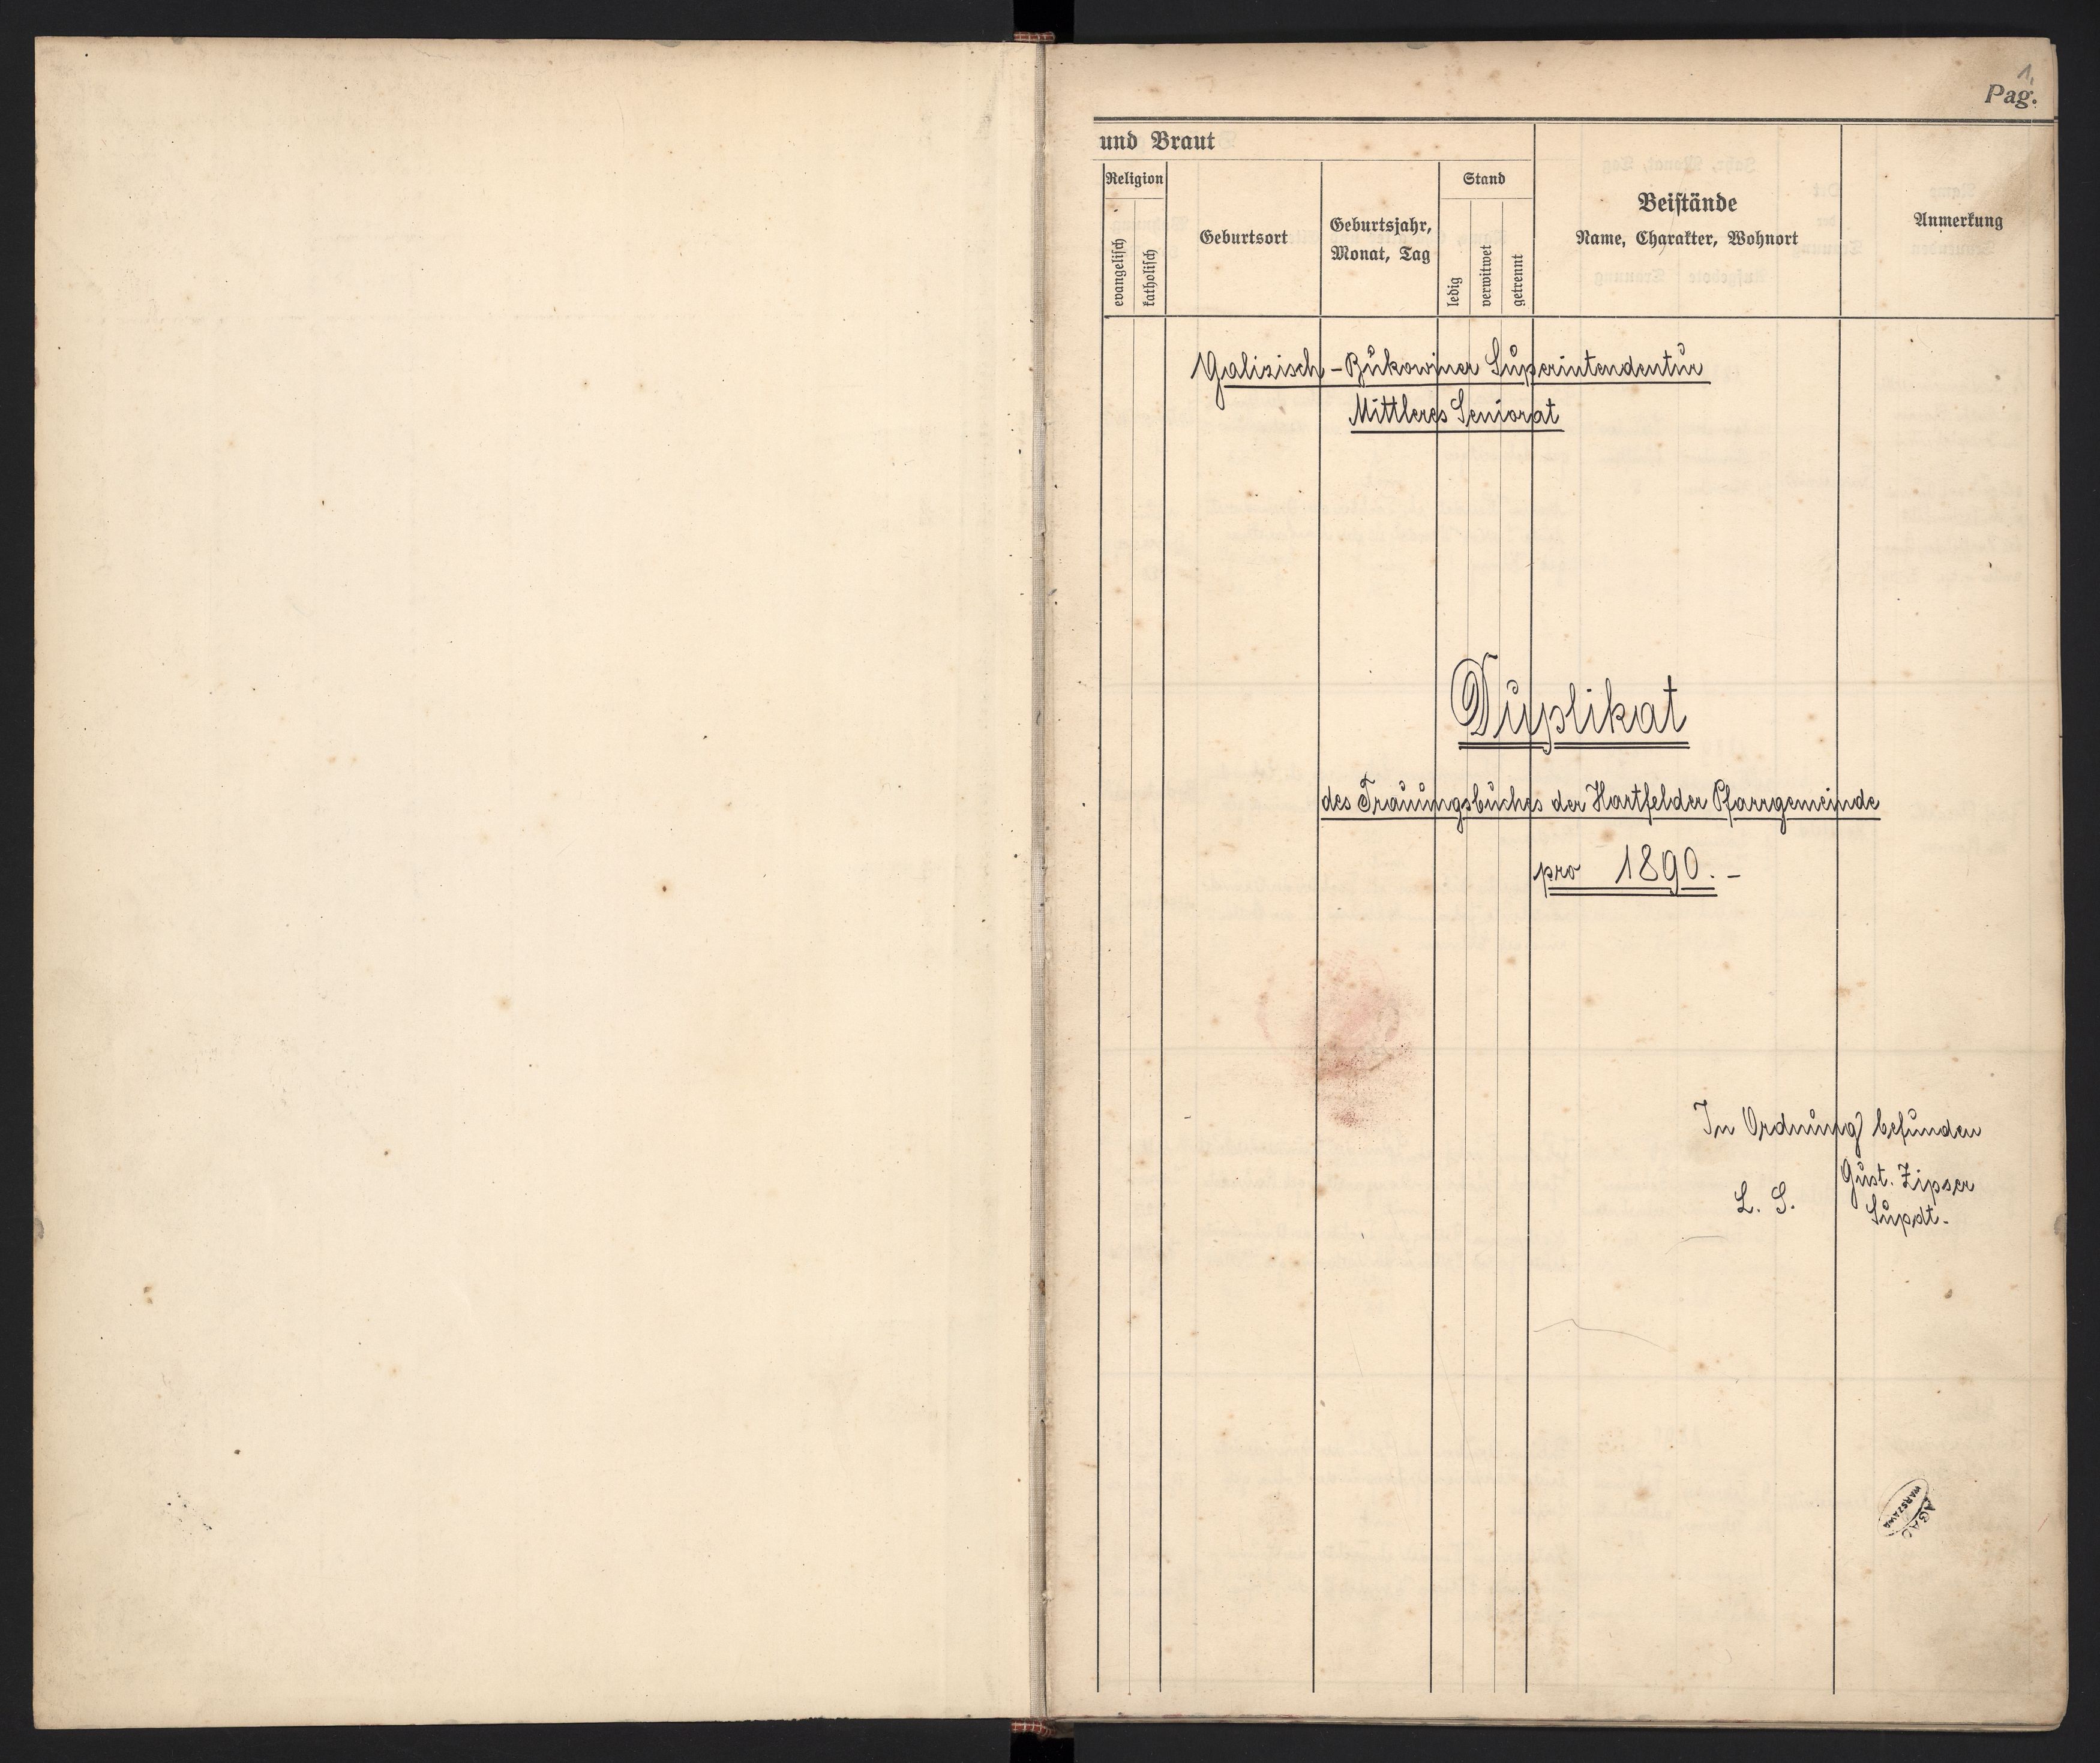 1.
Pag.
und Braut
Religion
evangelisch
katholisch
Geburtsort
Geburtsjahr,
Monat, Tag
Stand
ledig
verwitwet
getrennt
Beistände
Name, Charakter, Wohnort
Anmerkung
Galizisch-Bukowiner Superintendentur
Mittleres Seniorat
Duplikat
des Trauungsbuches der Hartfelder Pfarrgemeinde
pro 1890.-
In Ordnung befunden
Gust. Zipser
L. S.
Supdt.
AGAD
WARSZAWA